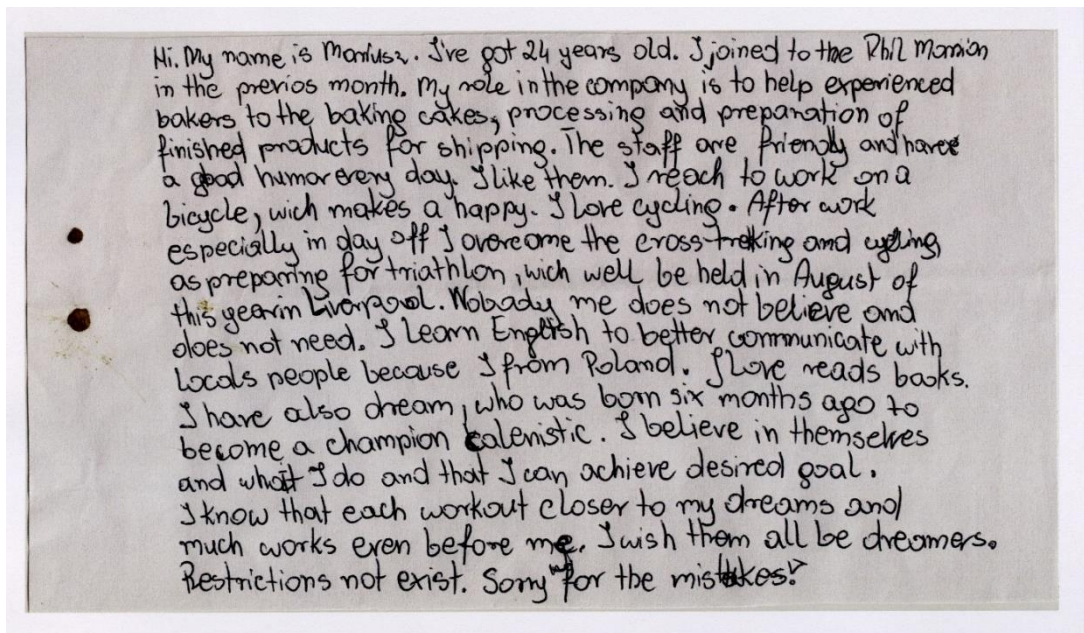 Hi. My name is Mariusz. I've got 24 years old. I joined to the Phil Morrion
in the previos month. My role in the company is to help experienced
bakers to the baking cakes, processing and preparation of
finished products for shipping. The staff are friendly and have
a good humor every day. I like them. I reach to work on a
bicycle, wich makes a happy. I love cycling. After work
especially in day off I overcome the cross-treking and cycling,
as preparing for triathlon, wich well be held in August of
this year in Liverpool. Nobady me does not believe and
does not need. I learn English to better communicate with
locals people because I from Poland. I love reads books.
I have also dream, who was born six months ago to
become a champion calenistic. I believe in themselves
and what I do and that I can achieve desired goal.
I know that each workout closer to my dreams and
much works even before me. I wish them all be dreamers.
Restrictions not exist. Sorry for the mistakes!